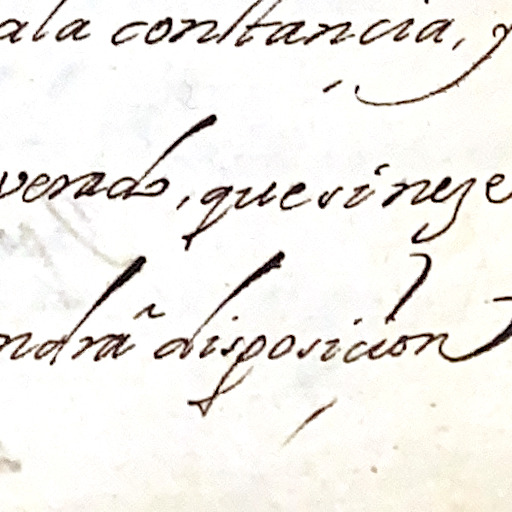 ala constancia, y
verado, quesineze
ndrã disposicion